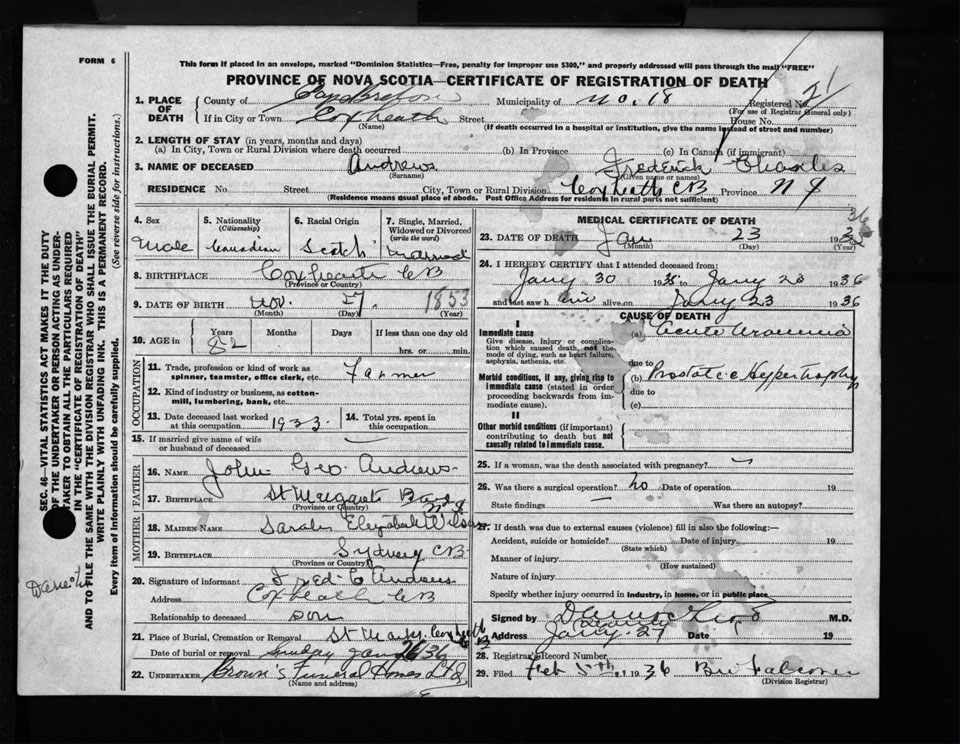 FORM 6
This form if placed in an envelope, marked "Dominion Statistics—Free, penalty for improper use $300," and properly addressed will pass through the mail "FREE"
PROVINCE OF NOVA SCOTIA—CERTIFICATE OF REGISTRATION OF DEATH
21
1. PLACE OF DEATH County of Cape Breton Municipality of No. 18 Registered No.
(For use of Registrar General only)
If in City or Town Coxheath Street House No.
(Name) (If death occurred in a hospital or institution, give the name instead of street and number)
2. LENGTH OF STAY (in years, months and days)
(a) In City, Town or Rural Division where death occurred (b) In Province (c) In Canada (if immigrant)
3. NAME OF DECEASED Andrews Frederick Charles
(Surname) (Given name or names)
RESIDENCE No. Street City, Town or Rural Division Coxheath CB Province N S
(Residence means usual place of abode. Post Office Address for residents in rural parts not sufficient)
4. Sex 5. Nationality (Citizenship) 6. Racial Origin 7. Single, Married, Widowed or Divorced (write the word)
Male Canadian Scotch
8. BIRTHPLACE Coxheath CB
(Province or Country)
9. DATE OF BIRTH Nov. 27, 1853
(Month) (Day) (Year)
10. AGE in Years Months Days If less than one day
82 hrs. or min.
OCCUPATION
11. Trade, profession or kind of work as spinner, teamster, office clerk, etc. Farmer
12. Kind of industry or business, as cotton-mill, lumbering, bank, etc.
13. Date deceased last worked at this occupation 1933 14. Total yrs. spent in this occupation
15. If married give name of wife or husband of deceased
FATHER
16. NAME John Geo. Andrews
17. BIRTHPLACE St Margarets Bay N S
(Province or Country)
MOTHER
18. MAIDEN NAME Sarah Elizabeth Wilson
19. BIRTHPLACE Sydney CB
(Province or Country)
20. Signature of informant Fred C Andrews
Address Coxheath CB
Relationship to deceased son
21. Place of Burial, Cremation or Removal St Marys Coxheath
Date of burial or removal Sunday Jan 26 36
22. UNDERTAKER Brown's Funeral Homes Ltd
(Name and address)
MEDICAL CERTIFICATE OF DEATH
36
23. DATE OF DEATH Jan 23 19
(Month) (Day) (Year)
24. I HEREBY CERTIFY that I attended deceased from:
Jany 30 19 to Jany 23 1936
and last saw h im alive on Jany 23 1936
CAUSE OF DEATH
I
Immediate cause (a) Acute Uraemia
Give disease, injury or complication which caused death, not the mode of dying, such as heart failure, asphyxia, asthenia, etc.
due to
Morbid conditions, if any, giving rise to immediate cause (stated in order proceeding backwards from immediate cause). (b) Prostatic Hypertrophy
due to
(c)
II
Other morbid conditions (if important) contributing to death but not causally related to immediate cause.
25. If a woman, was the death associated with pregnancy?
26. Was there a surgical operation? no Date of operation 19
State findings Was there an autopsy?
27. If death was due to external causes (violence) fill in also the following:—
Accident, suicide or homicide? Date of injury 19
(State which)
Manner of injury
(How sustained)
Nature of injury
Specify whether injury occurred in Industry, in home, or in public place
Signed by M.D.
Address Jany. 27 Date 19
28. Registrar's Record Number
29. Filed Feb 5th 1936 Falconer
(Division Registrar)
SEC. 46—VITAL STATISTICS ACT MAKES IT THE DUTY
OF THE UNDERTAKER OR PERSON ACTING AS UNDER-
TAKER TO OBTAIN ALL THE PARTICULARS REQUIRED
IN THE "CERTIFICATE OF REGISTRATION OF DEATH"
AND TO FILE THE SAME WITH THE DIVISION REGISTRAR WHO SHALL ISSUE THE BURIAL PERMIT.
WRITE PLAINLY WITH UNFADING INK. THIS IS A PERMANENT RECORD.
Every item of information should be carefully supplied. (See reverse side for instructions.)